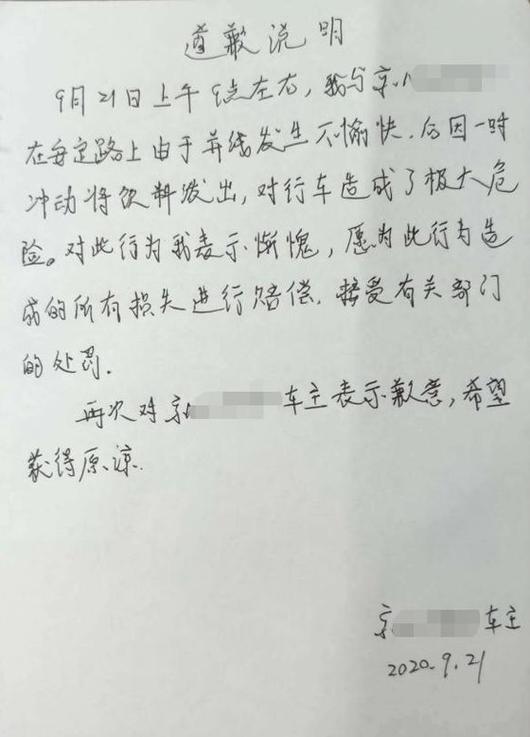 道歉说明
9月21日上午9点左右，我与京
在安定路上由于并线发生不愉快.后因一时
冲动将饮料泼出，对行车造成了极大危
险。对此行为我表示惭愧，愿为此行为造
成的所有损失进行赔偿.接受有关部门
的处罚.
再次对京 车主表示歉意，希望
获得原谅.
京 车主
2020.9.21